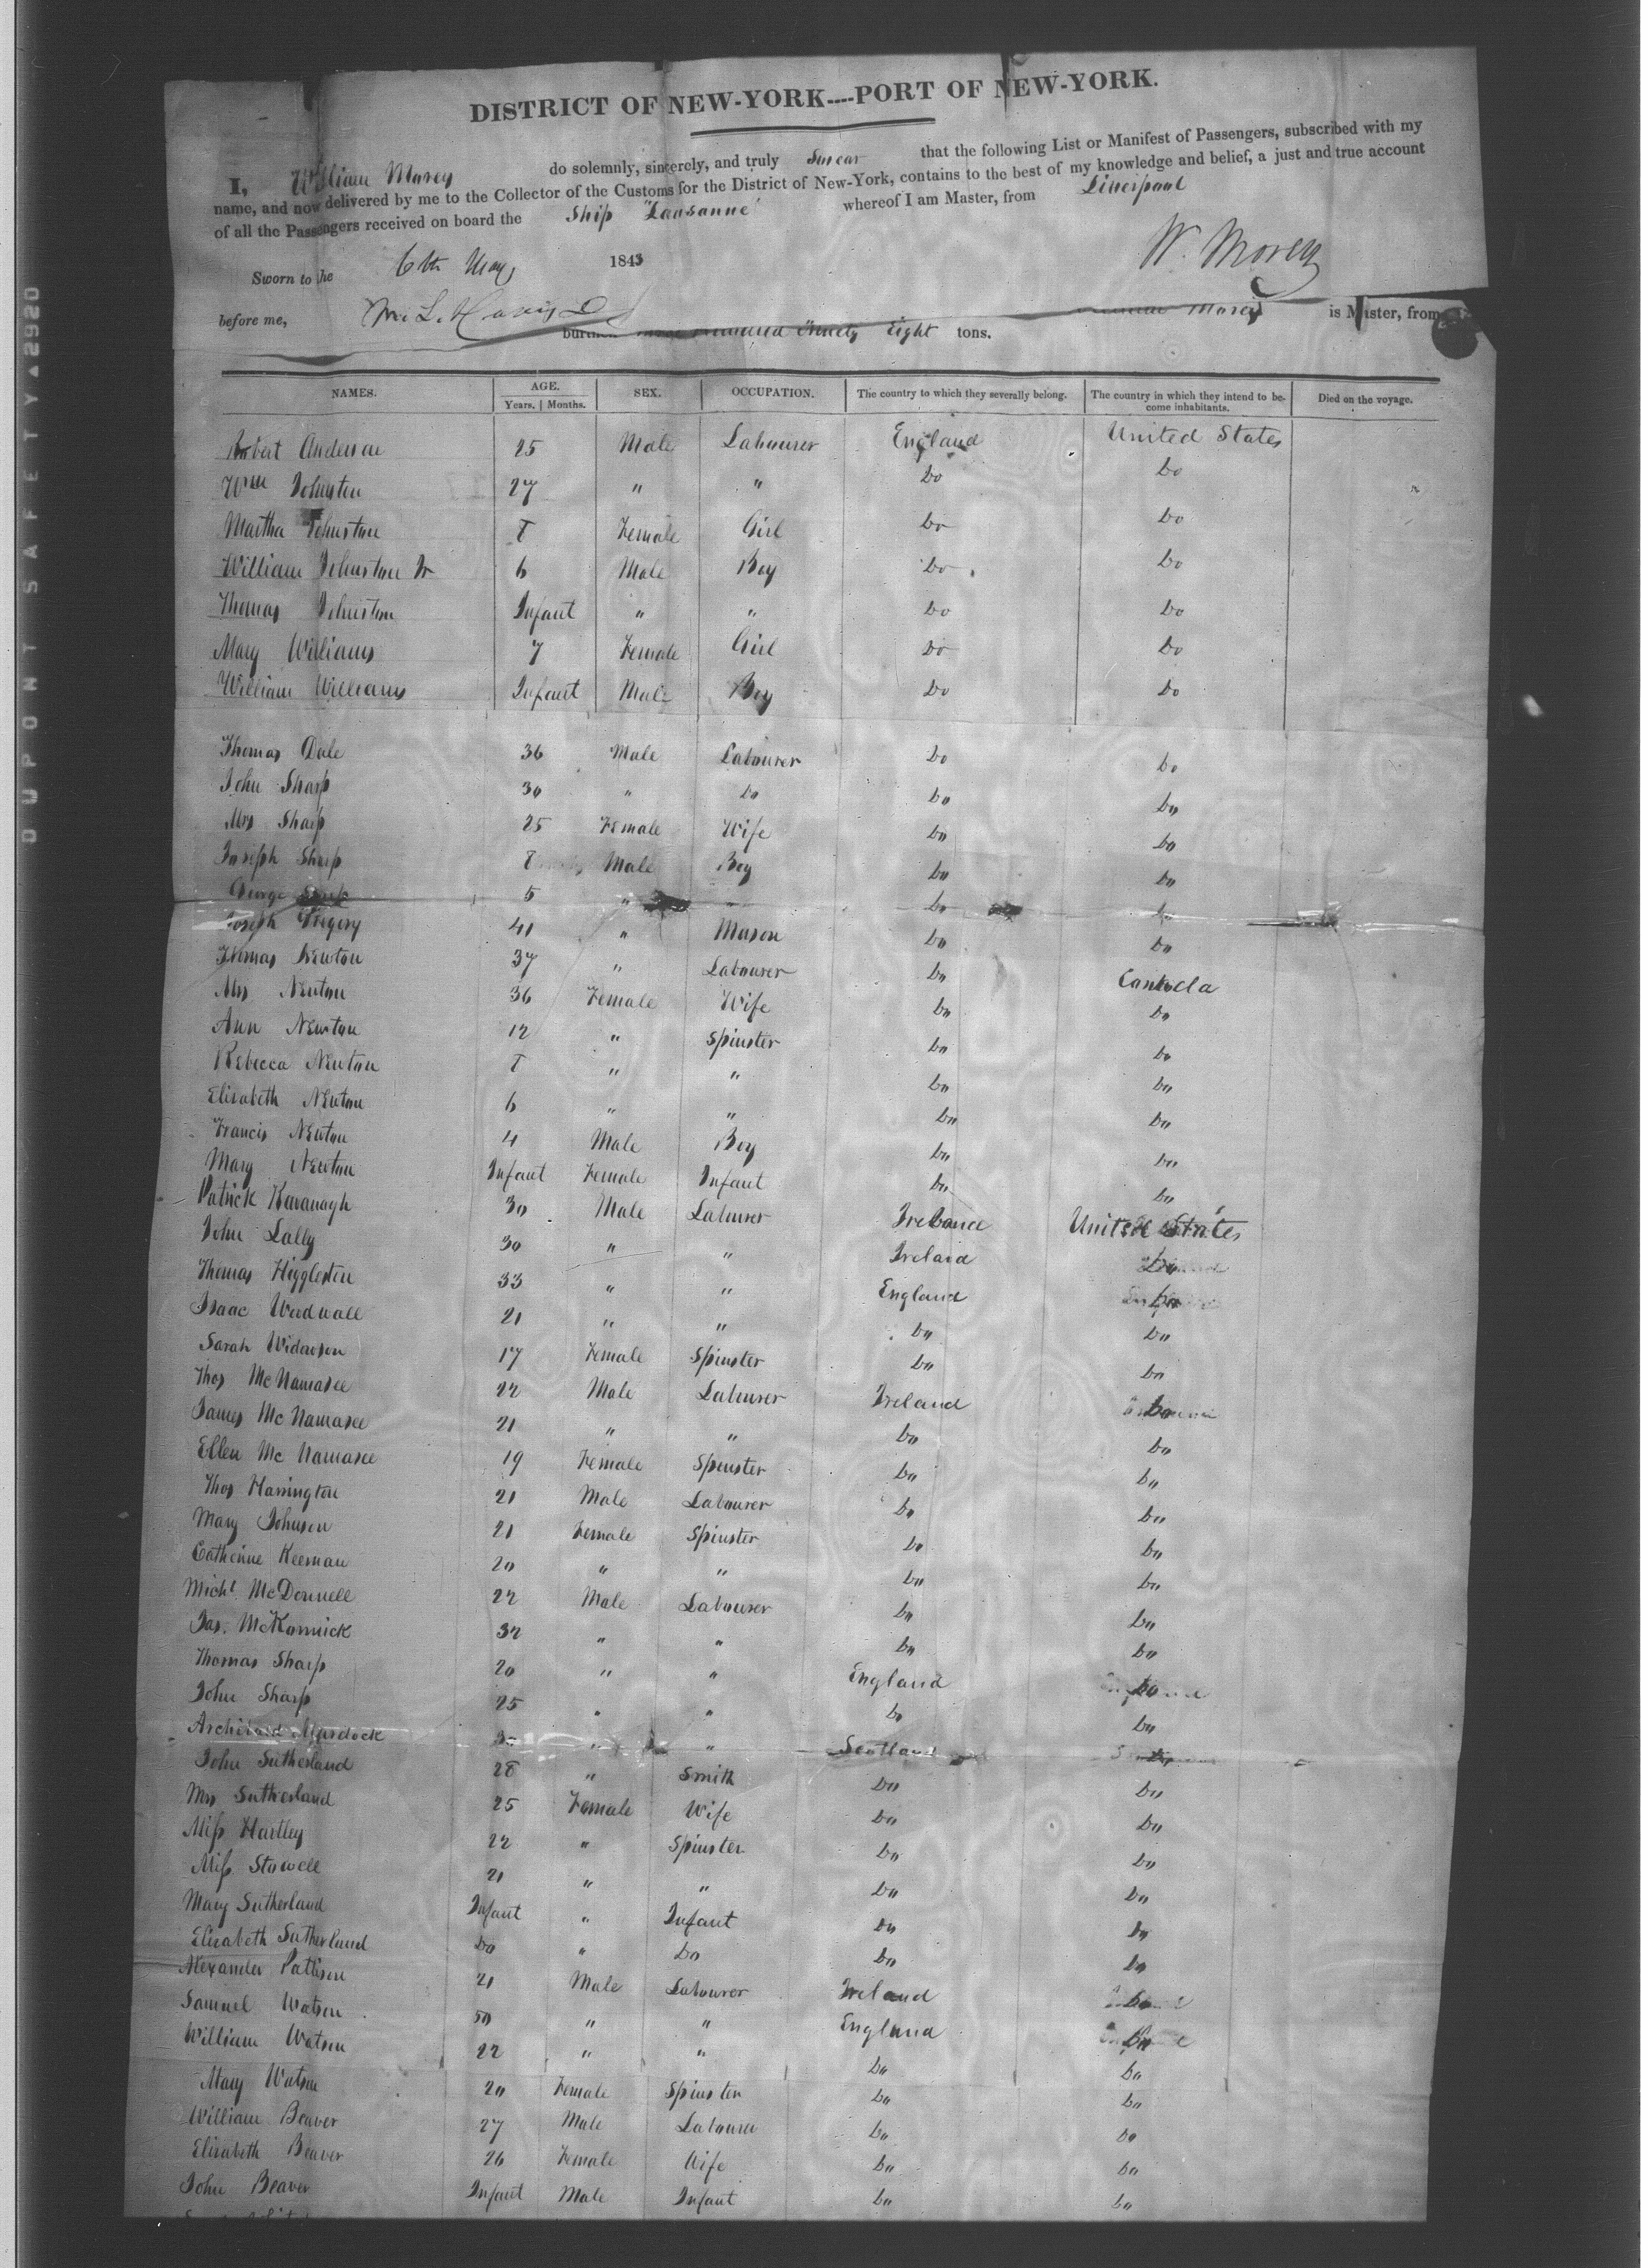 DISTRICT OF NEW-YORK----PORT OF NEW-YORK.
I, William Morey do solemnly, sincerely, and truly Swear that the following List or Manifest of Passengers, subscribed with my
name, and now delivered by me to the Collector of the Customs for the District of New-York, contains to the best of my knowledge and belief, a just and true account
of all the Passengers received on board the Ship "Lausanne" whereof I am Master, from Liverpool
Sworn to the 6th May 1843 W. Morey
before me,
Morey is Master, from
burthen hundred Ninety Eight tons.
NAMES. AGE. SEX. OCCUPATION. The country to which they severally belong. The country in which they intend to be- Died on the voyage.
Years. | Months. come inhabitants.
Robert Anderson 25 Male Labourer England United States
Wm Johnston 27 " " Do Do
Martha Johnston 8 Female Girl Do Do
William Johnston Jr 6 Male Boy Do Do
Thomas Johnston Infant " " Do Do
Mary Williams 7 Female Girl Do Do
William Williams Infant Male Boy Do Do
Thomas Dale 36 Male Labourer Do Do
John Sharp 30 " Do Do Do
Mrs Sharp 25 Female Wife Do Do
Joseph Sharp 8 Male Boy Do Do
George Sharp 5 " " Do Do
Joseph Gregory 41 " Mason Do Do
Thomas Newton 37 " Labourer Do Canada
Mrs Newton 36 Female Wife Do Do
Ann Newton 12 " Spinster Do Do
Rebecca Newton 8 " " Do Do
Elizabeth Newton 6 " " Do Do
Francis Newton 4 Male Boy Do Do
Mary Newton Infant Female Infant Do Do
Patrick Kavanagh 30 Male Labourer Ireland United States
John Lally 30 " " Ireland Do
Thomas Higgleston 33 " " England Do
Isaac Woodwall 21 " " Do Do
Sarah Widowson 17 Female Spinster Do Do
Thos McNamaree 22 Male Labourer Ireland Do
James McNamaree 21 " " Do Do
Ellen McNamaree 19 Female Spinster Do Do
Thos Harrington 21 Male Labourer Do Do
Mary Johnson 21 Female Spinster Do Do
Catherine Keernan 20 " " Do Do
Michl McDonnell 22 Male Labourer Do Do
Jas. McKormick 32 " " Do Do
Thomas Sharp 20 " " England Do
John Sharp 25 " " Do Do
Archibald Murdock " " Scotland Do
John Sutherland 28 " Smith Do Do
Mrs Sutherland 25 Female Wife Do Do
Miss Hartley 22 " Spinster Do Do
Miss Stowell 21 " " Do Do
Mary Sutherland Infant " Infant Do Do
Elizabeth Sutherland Do " Do Do Do
Alexander Pattison 21 Male Labourer Ireland Do
Samuel Watson 50 " " England Do
William Watson 22 " " Do Do
Mary Watson 20 Female Spinster Do Do
William Beaver 27 Male Labourer Do Do
Elizabeth Beaver 26 Female Wife Do Do
John Beaver Infant Male Infant Do Do
DUPONT SAFETY ▲2920